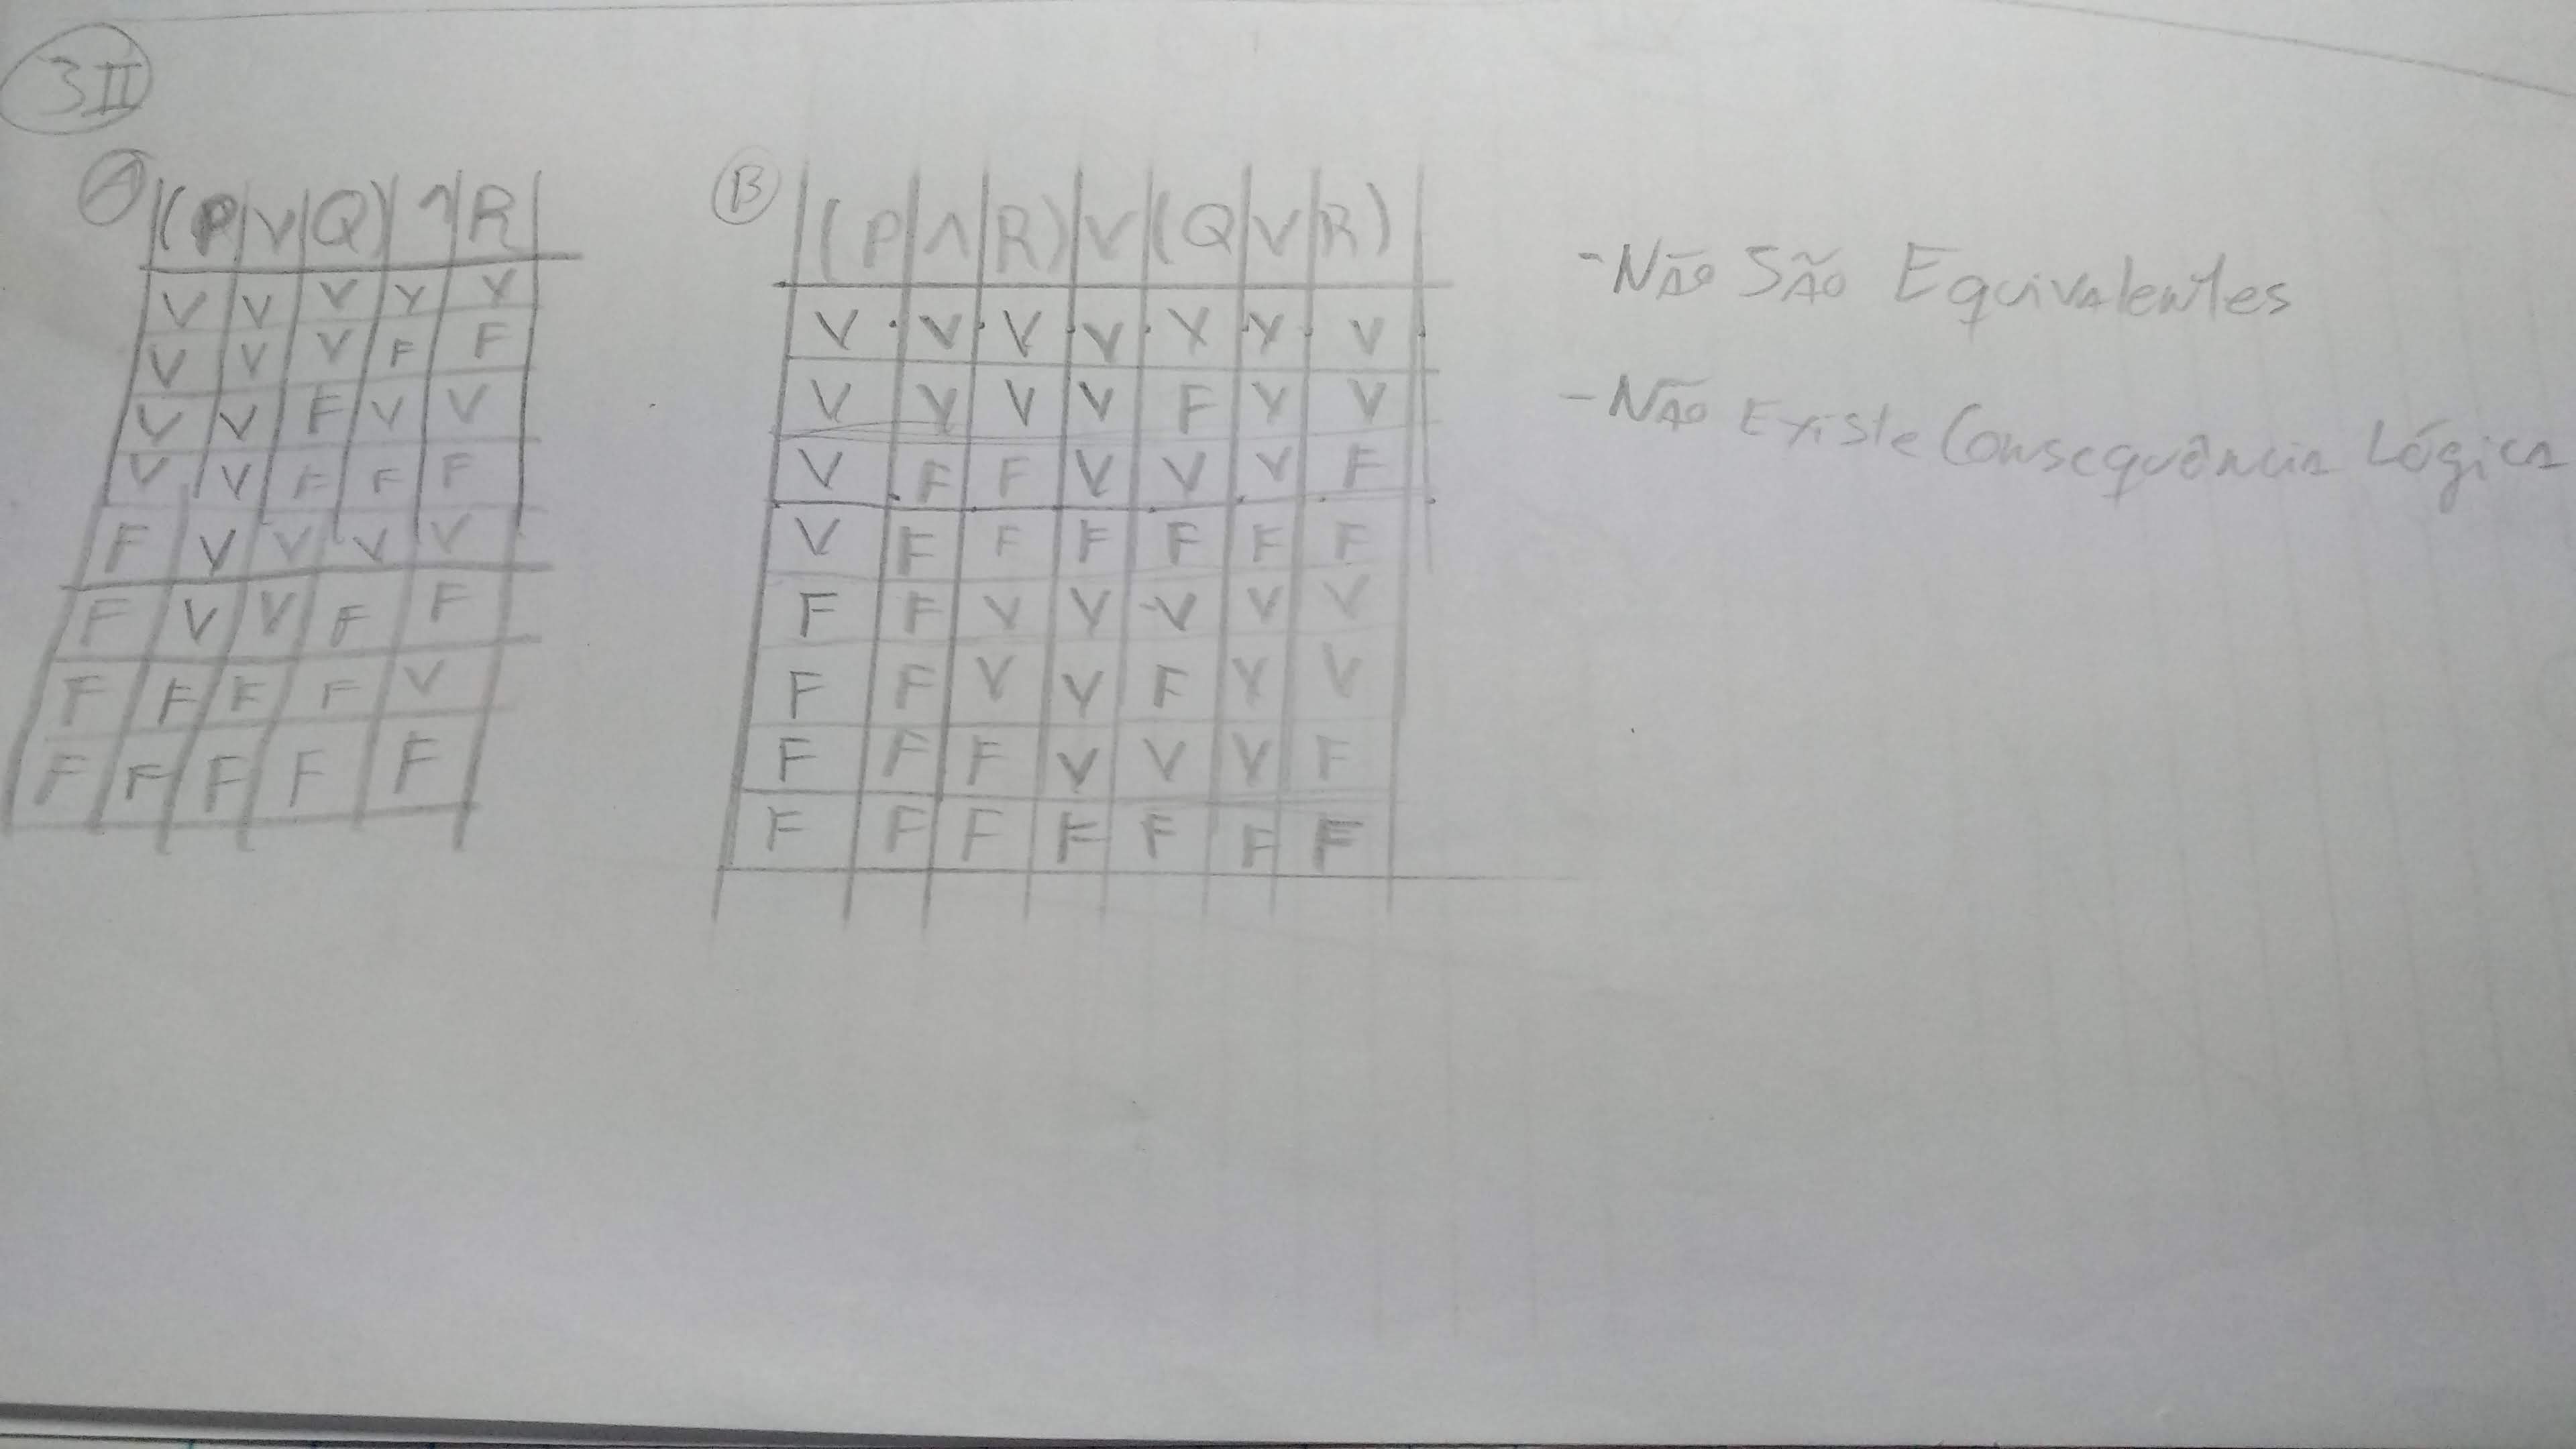 3II
A |(P|v|Q)|^|R|
V V V V V
V V V F F
V V F V V
V V F F F
F V V V V
F V V F F
F F F F V
F F F F F
B |(P|^|R)|v|(Q|v|R)|
V V V V V V V
V V V V F V V
V F F V V V F
V F F F F F F
F F V V V V V
F F V V F V V
F F F V V V F
F F F F F F F
- Não São Equivalentes
- Não Existe Consequência Lógica